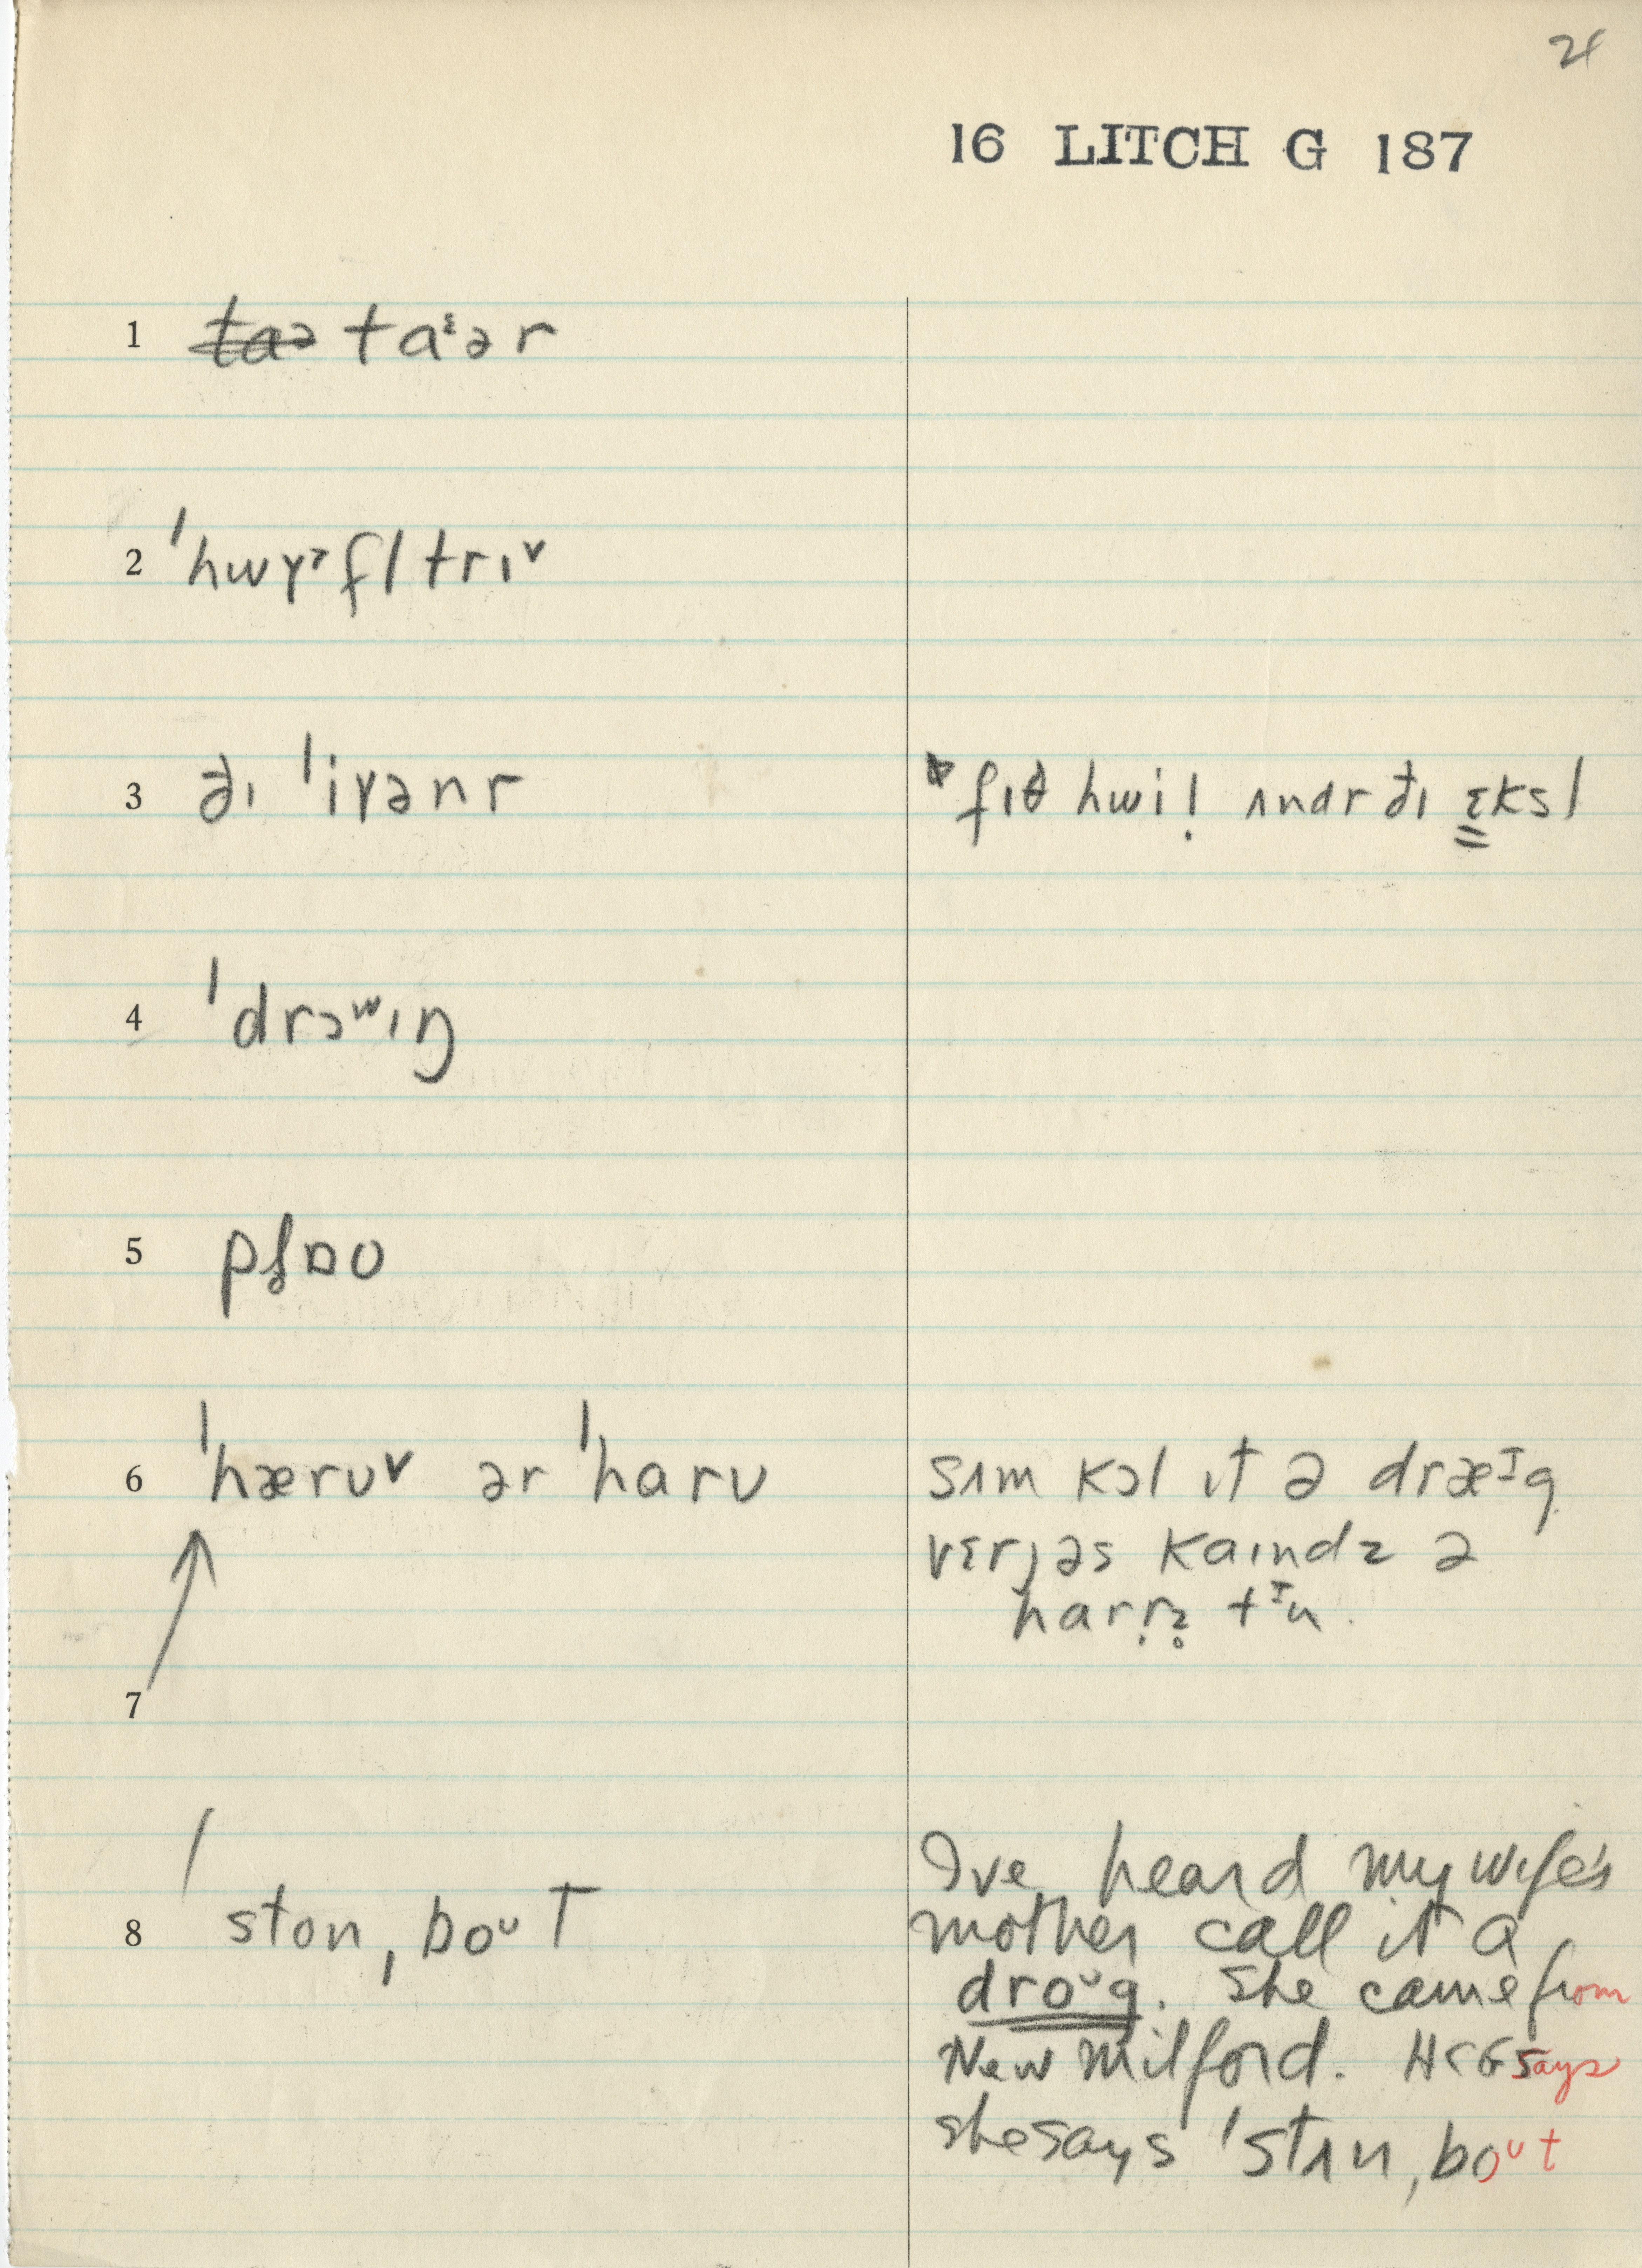 24
16 LITCH G 187
1 taə taᵋər
2 ˈhwɤɂfl trɪᵛ
3 ðɪ ˈiɤənr
fɪθ hwil ʌndr ðɪ ɛksl
4 ˈdrɔʷɪŋ
5 plɒʊ
6 ˈhærʊᵛ ər ˈharʊ
sʌm kɔl ɪt ə dræᶦg
vɛrjəs kaɪndz ə
harr̩z̥ tᶦu.
7
8 ˈston ˌboᶷt
I've heard my wife's
mother call it a
droᶷg. She came from
New Milford. HCG says
she says ˈstʌn ˌboᶷt